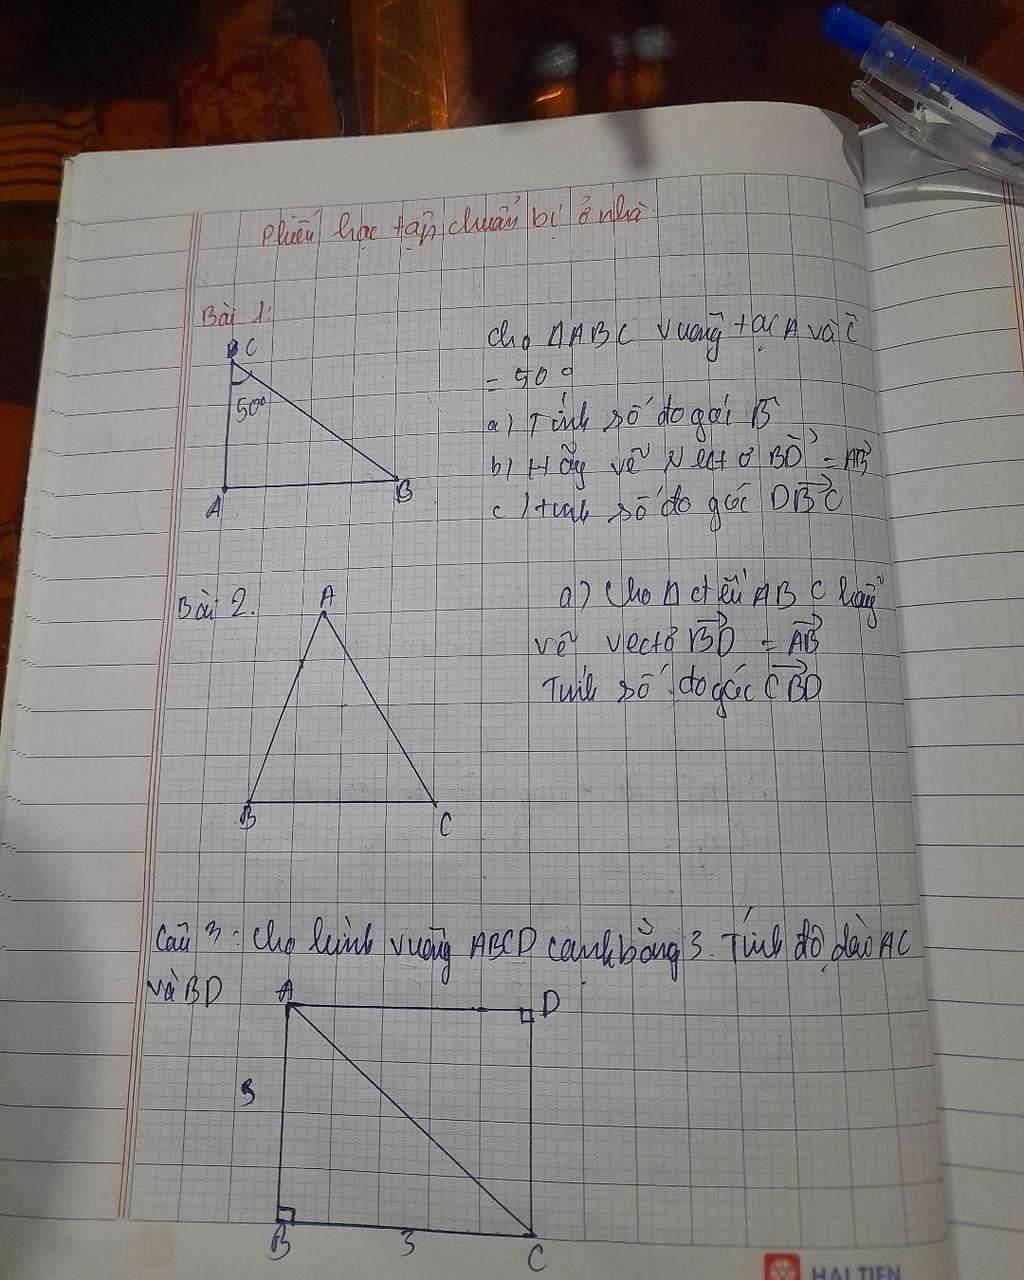 Phiếu học tập chuẩn bị ở nhà.
Bài 1:
C
50°
A
B
Cho ΔABC vuông tại A và Ĉ
= 50°
a) Tính số đo góc B̂
b) Hãy vẽ vectơ BD→ = AB→
c) tính số đo góc DBC→
Bài 2.
A
B
C
a) Cho Δ đều ABC hãy
vẽ vectơ BD→ = AB→
Tính số đo góc CBD→
Câu 3: Cho hình vuông ABCD cạnh bằng 3. Tính độ dài AC
và BD
A
D
3
B
3
C
HẢI TIẾN